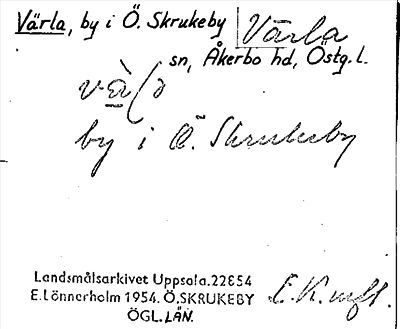 Värla, by i Ö. Skrukeby
Värla
sn, Åkerbo hd, Östg. l.
by i Ö. Skrukeby
Landsmålsarkivet Uppsala. 22654
E. Lönnerholm 1954. Ö. SKRUKEBY
ÖGL. LÄN.
E. K. mfl.